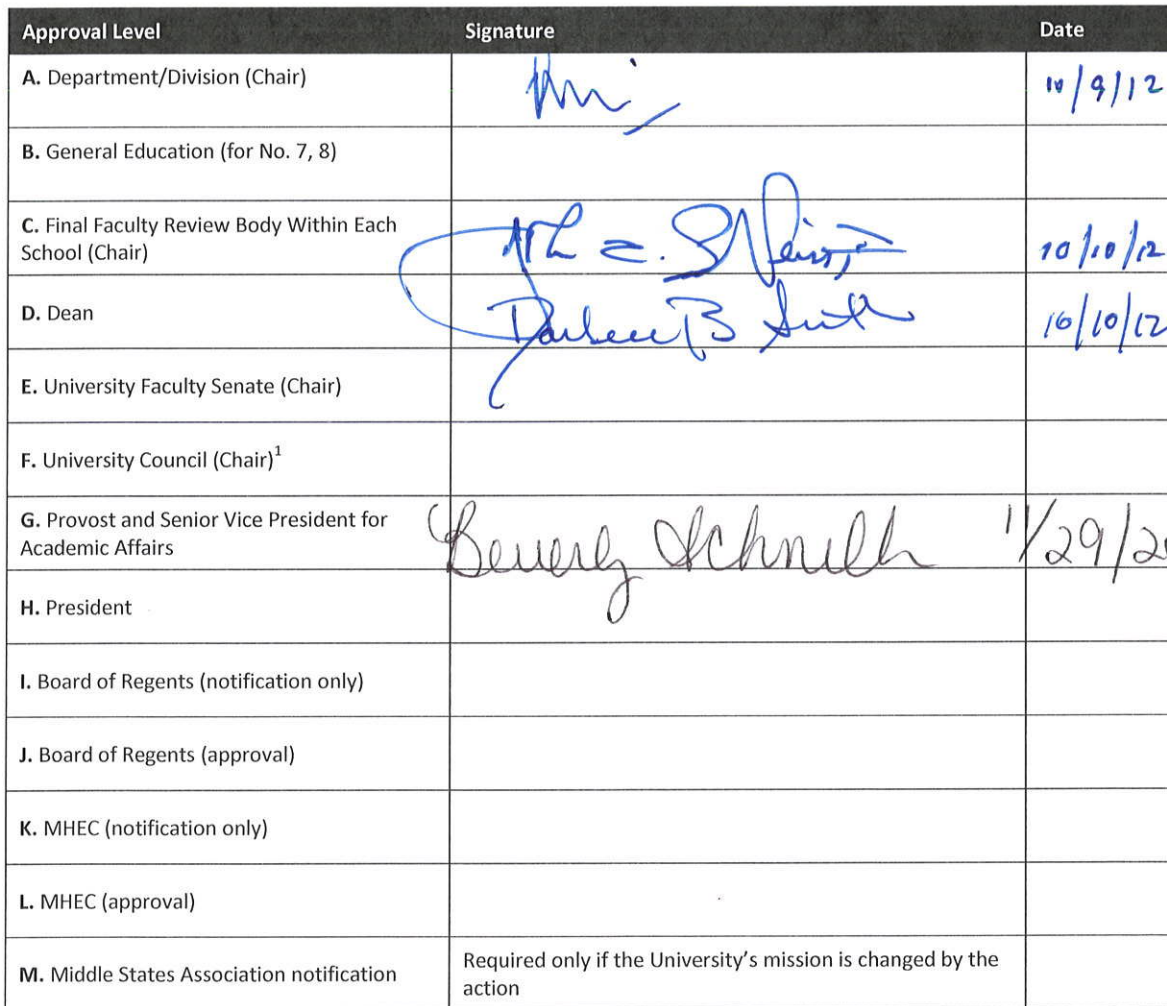 Approval Level Signature Date
A. Department/Division (Chair) 10/9/12
B. General Education (for No. 7, 8)
C. Final Faculty Review Body Within Each
School (Chair) 10/10/12
D. Dean Darlene B Smith 10/10/12
E. University Faculty Senate (Chair)
F. University Council (Chair)¹
G. Provost and Senior Vice President for
Academic Affairs Beverly 11/29/20
H. President
I. Board of Regents (notification only)
J. Board of Regents (approval)
K. MHEC (notification only)
L. MHEC (approval)
M. Middle States Association notification Required only if the University's mission is changed by the
action